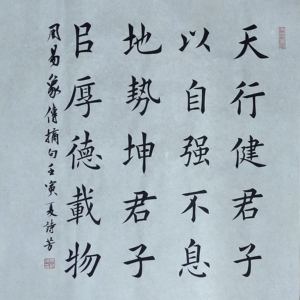 天行健君子
以自强不息
地勢坤君子
㠯厚德載物
周易象傳摘句壬寅夏詩芳